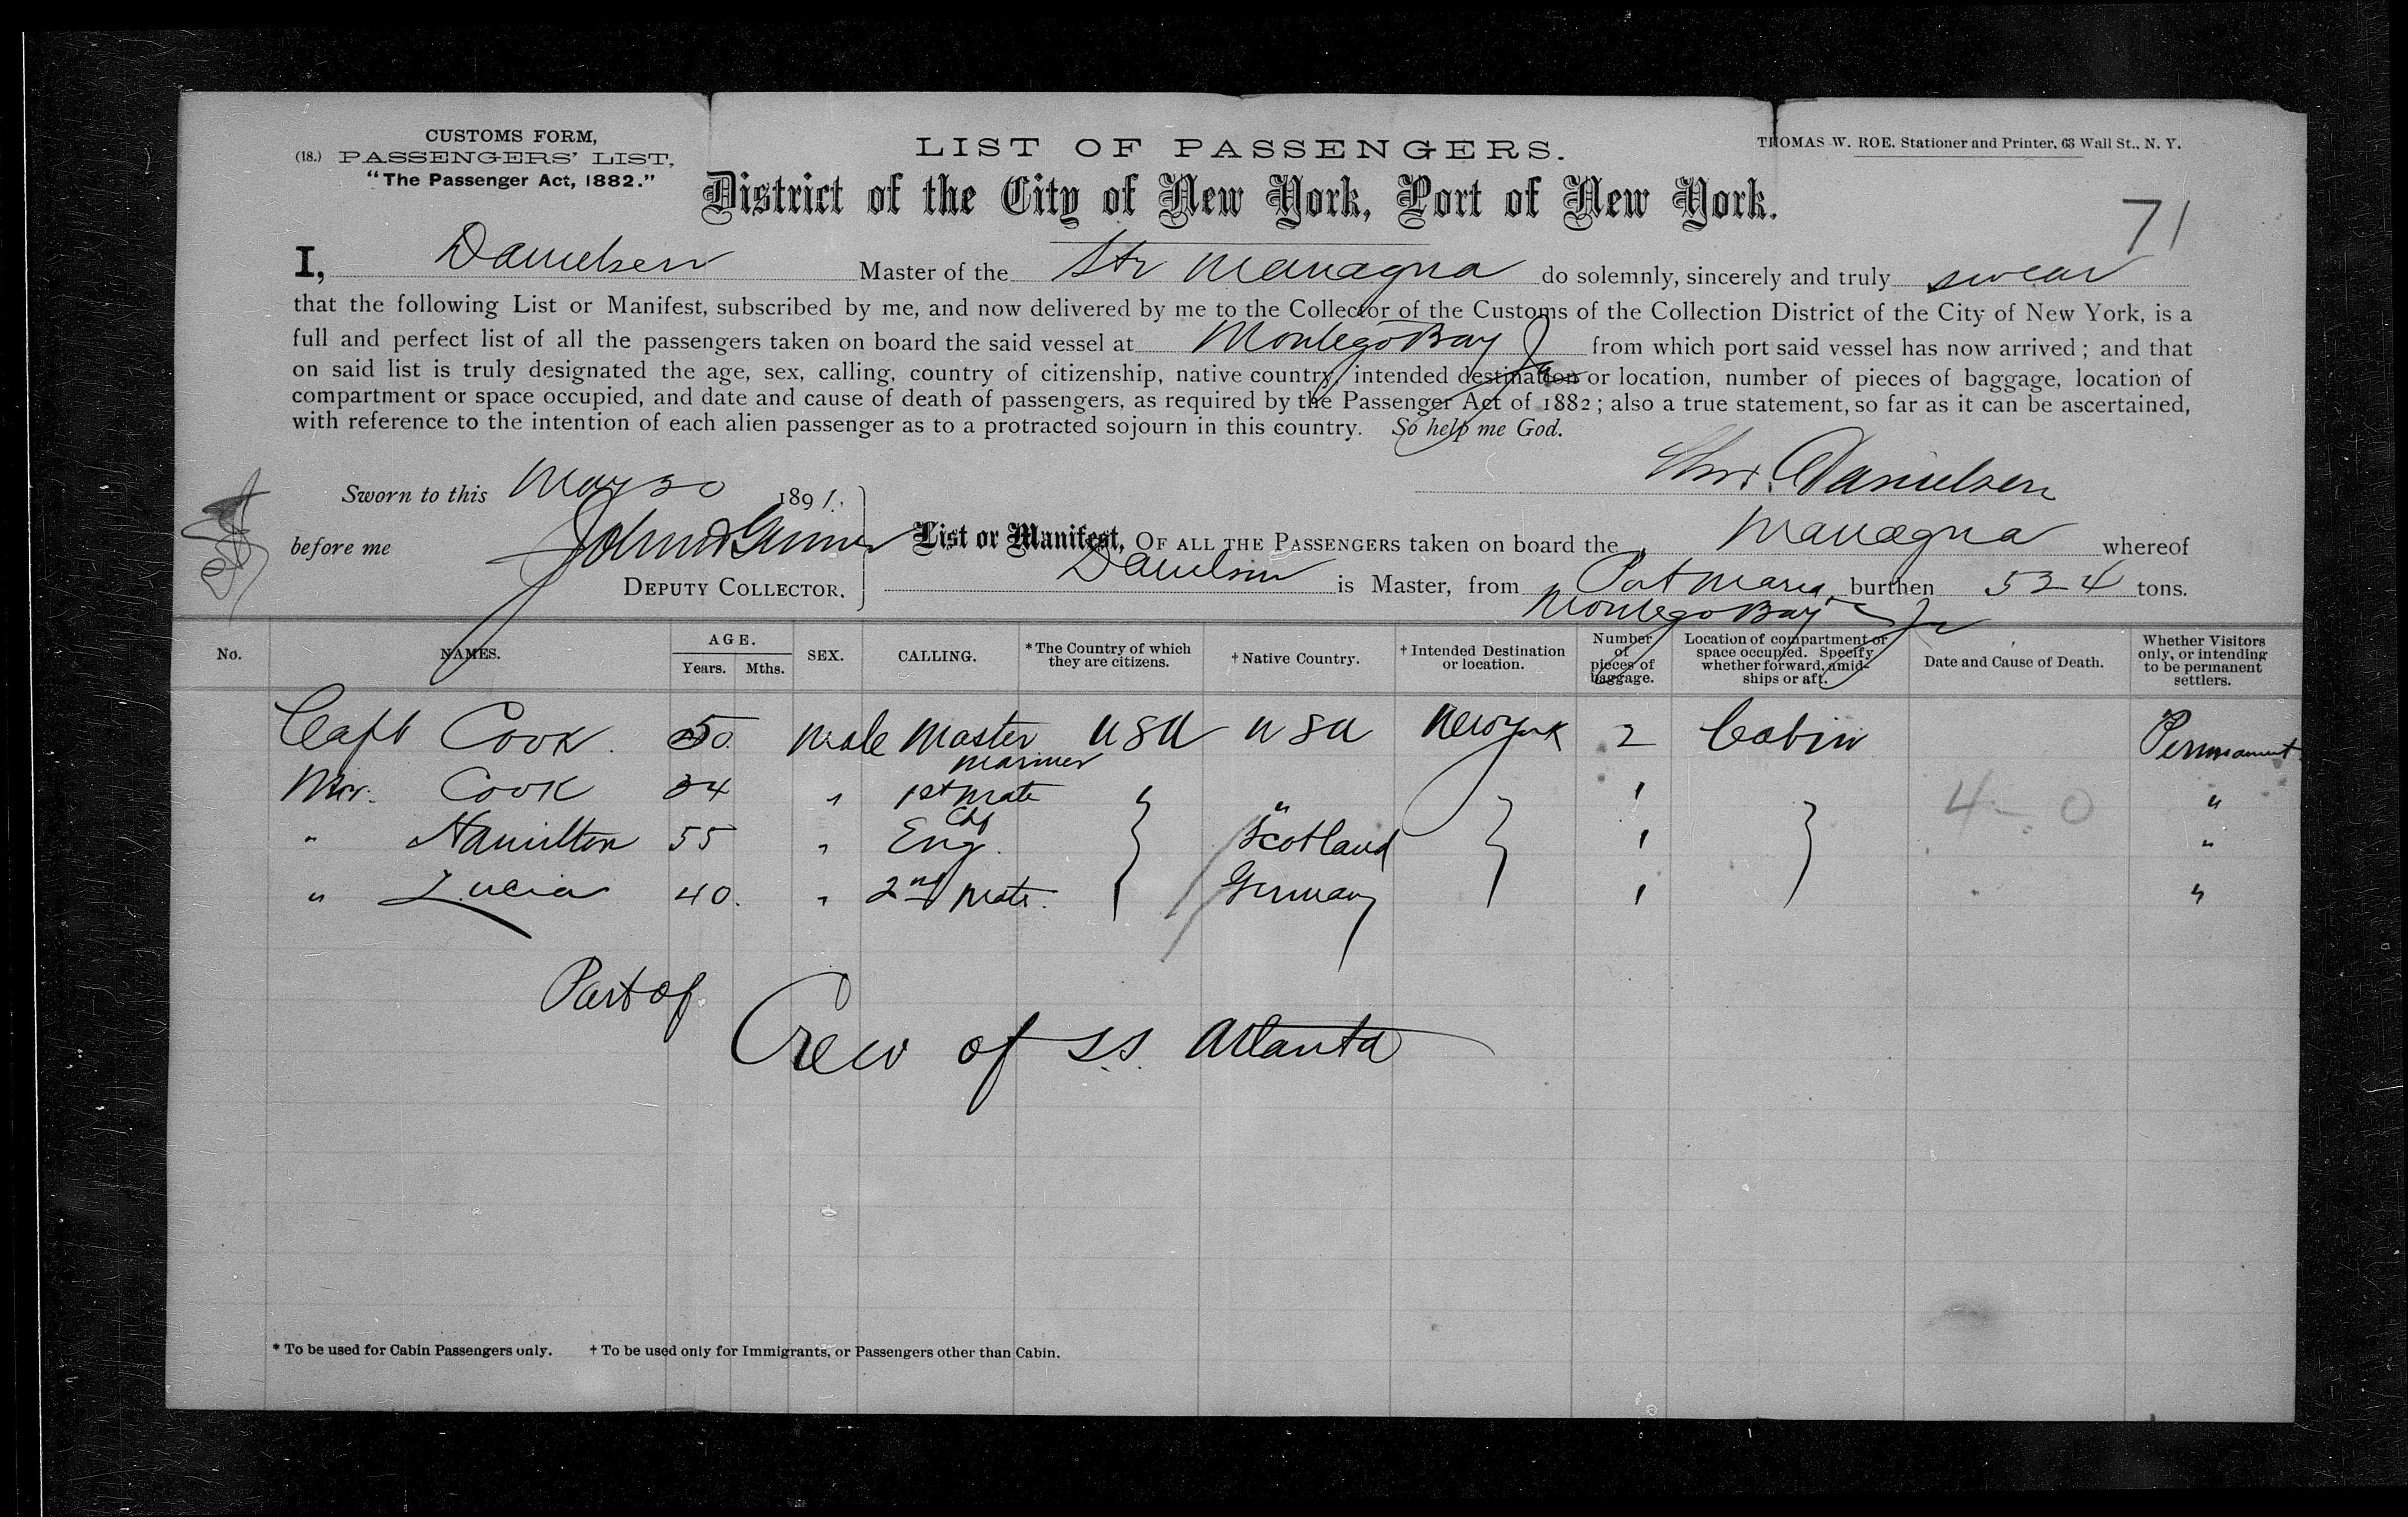 CUSTOMS FORM,
(18.) PASSENGERS' LIST,
"The Passenger Act, 1882."
LIST OF PASSENGERS.
THOMAS W. ROE, Stationer and Printer, 63 Wall St., N. Y.
District of the City of New York, Port of New York.
71
I, Danielsen Master of the Str Managua do solemnly, sincerely and truly swear
that the following List or Manifest, subscribed by me, and now delivered by me to the Collector of the Customs of the Collection District of the City of New York, is a
full and perfect list of all the passengers taken on board the said vessel at Montego Bay Ja from which port said vessel has now arrived; and that
on said list is truly designated the age, sex, calling, country of citizenship, native country, intended destination or location, number of pieces of baggage, location of
compartment or space occupied, and date and cause of death of passengers, as required by the Passenger Act of 1882; also a true statement, so far as it can be ascertained,
with reference to the intention of each alien passenger as to a protracted sojourn in this country. So help me God.
Danielsen
Sworn to this May 30 1891.
before me John
DEPUTY COLLECTOR.
List or Manifest, OF ALL THE PASSENGERS taken on board the Managua whereof
Danielsen is Master, from Port Maria, burthen 534 tons.
Montego Bay Ja
No. NAMES. AGE. Years. Mths. SEX. CALLING. *The Country of which they are citizens. †Native Country. †Intended Destination or location. Number of pieces of baggage. Location of compartment or space occupied. Specify whether forward, amidships or aft. Date and Cause of Death. Whether Visitors only, or intending to be permanent settlers.
Capt Cook. 50. Male Master Mariner USA USA New York 2 Cabin Permanent
Mr. Cook 34 " 1st Mate " " 1 4-0 "
" Hamilton 55 " Chf Eng. Scotland 1 "
" Lucia 40. " 2nd Mate. Germany 1 "
Part of
Crew of S.S. Atlanta
* To be used for Cabin Passengers only. † To be used only for Immigrants, or Passengers other than Cabin.